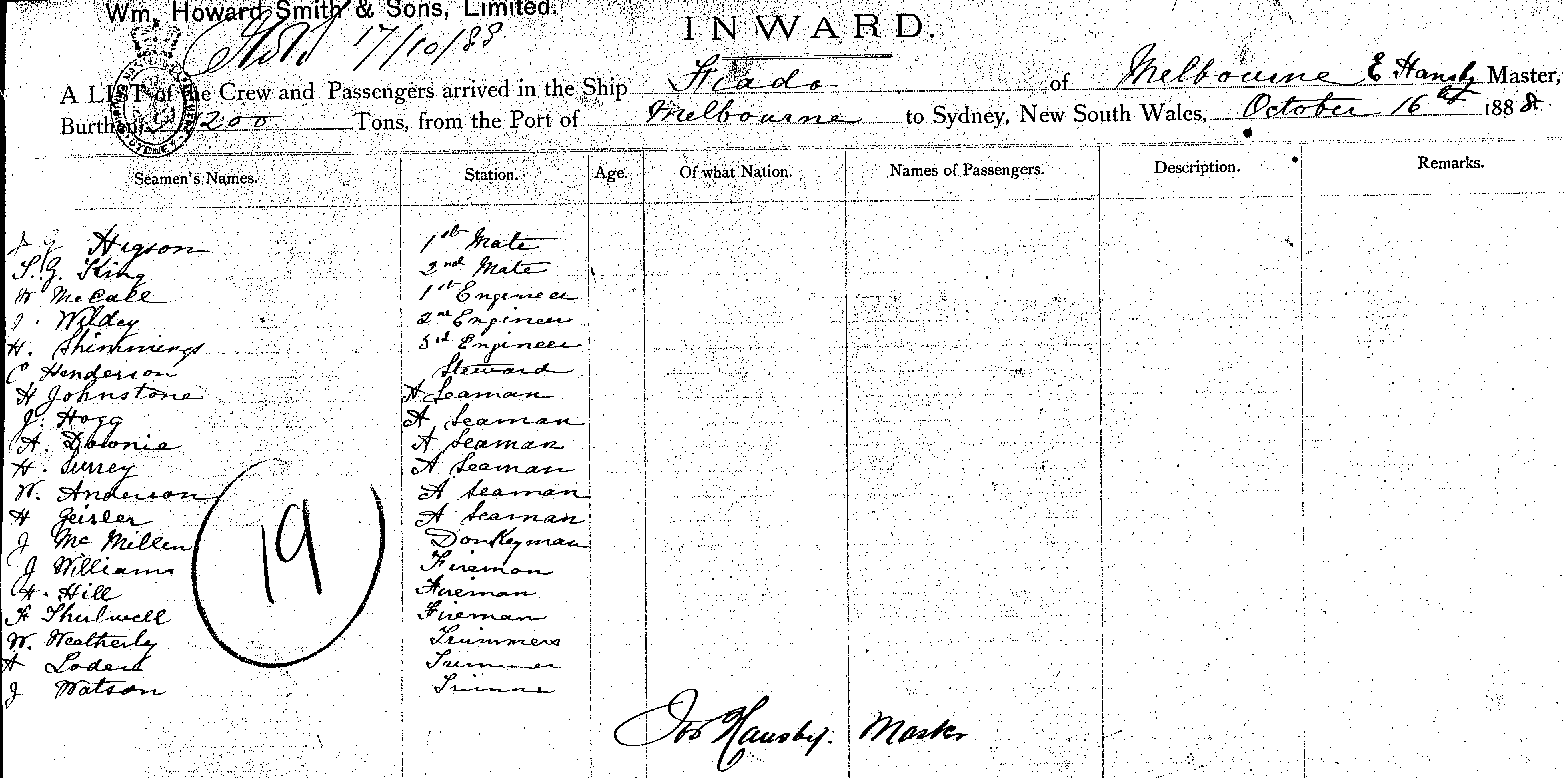 Wm. Howard Smith & Sons, Limited.
17/10/88
INWARD.
A LIST of the Crew and Passengers arrived in the Ship Fiado of Melbourne E Hansby Master,
Burthen 1200 Tons, from the Port of Melbourne to Sydney, New South Wales, October 16th 1888
Seamen's Names. Station. Age. Of what Nation. Names of Passengers. Description. Remarks.
Higson 1st Mate
S. G. King 2nd Mate
W McCall 1st Engineer
J. Wildey 2nd Engineer
H. Shimmings 3rd Engineer
C Henderson Steward
H Johnstone A Seaman
J. Hogg A Seaman
A. Downie A Seaman
H. Surrey A Seaman
W. Anderson A Seaman
H Geisler A Seaman
J McMillen Donkeyman
J Williams Fireman
H. Hill Fireman
F Thirlwell Fireman
W. Weatherly Trimmers
A Loders Trimmer
J Watson Trimme
19
Jos Hansby. Master